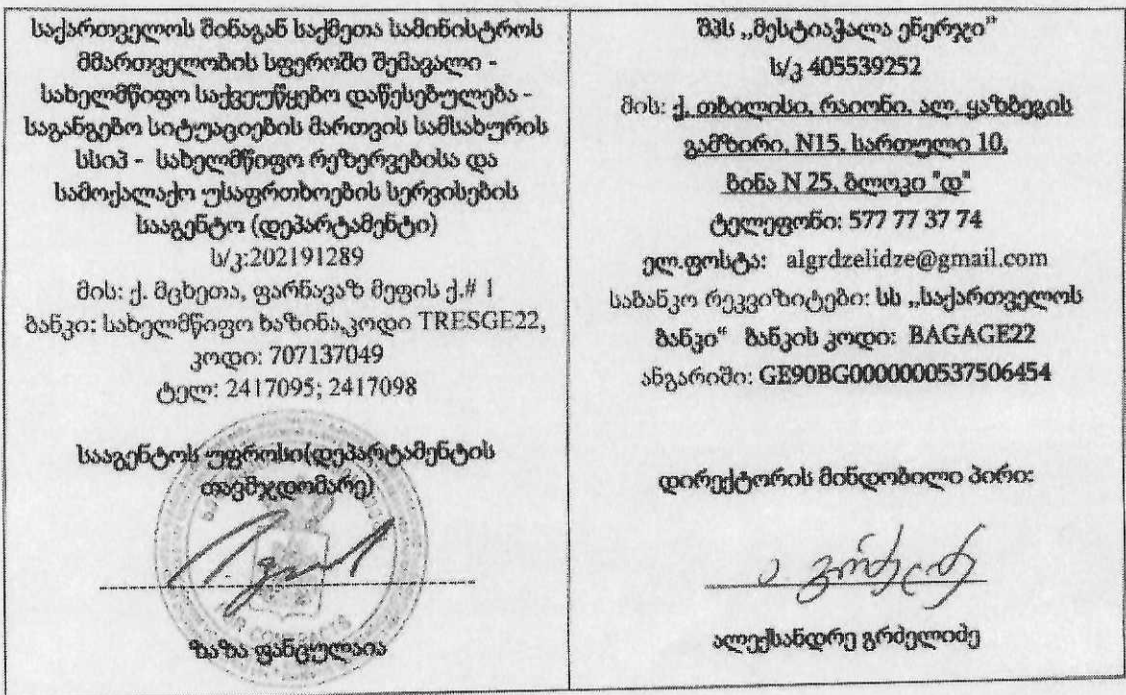 საქართველოს შინაგან საქმეთა სამინისტროს
მმართველობის სფეროში შემავალი -
სახელმწიფო საქვეუწყებო დაწესებულება -
საგანგებო სიტუაციების მართვის სამსახურის
სსიპ - სახელმწიფო რეზერვებისა და
სამოქალაქო უსაფრთხოების სერვისების
სააგენტო (დეპარტამენტი)
ს/კ:202191289
მის: ქ. მცხეთა, ფარნავაზ მეფის ქ.# 1
ბანკი: სახელმწიფო ხაზინა,კოდი TRESGE22,
კოდი: 707137049
ტელ: 2417095; 2417098
სააგენტოს უფროსი(დეპარტამენტის
თავმჯდომარე)
ზაზა ფანცულაია
შპს „მესტიაჭალა ენერჯი"
ს/კ 405539252
მის: ქ. თბილისი, რაიონი, ალ. ყაზბეგის
გამზირი, N15, სართული 10,
ბინა N 25, ბლოკი "დ"
ტელეფონი: 577 77 37 74
ელ.ფოსტა: algrdzelidze@gmail.com
საბანკო რეკვიზიტები: სს „საქართველოს
ბანკი“ ბანკის კოდი: BAGAGE22
ანგარიში: GE90BG0000000537506454
დირექტორის მინდობილი პირი:
ალექსანდრე გრძელიძე